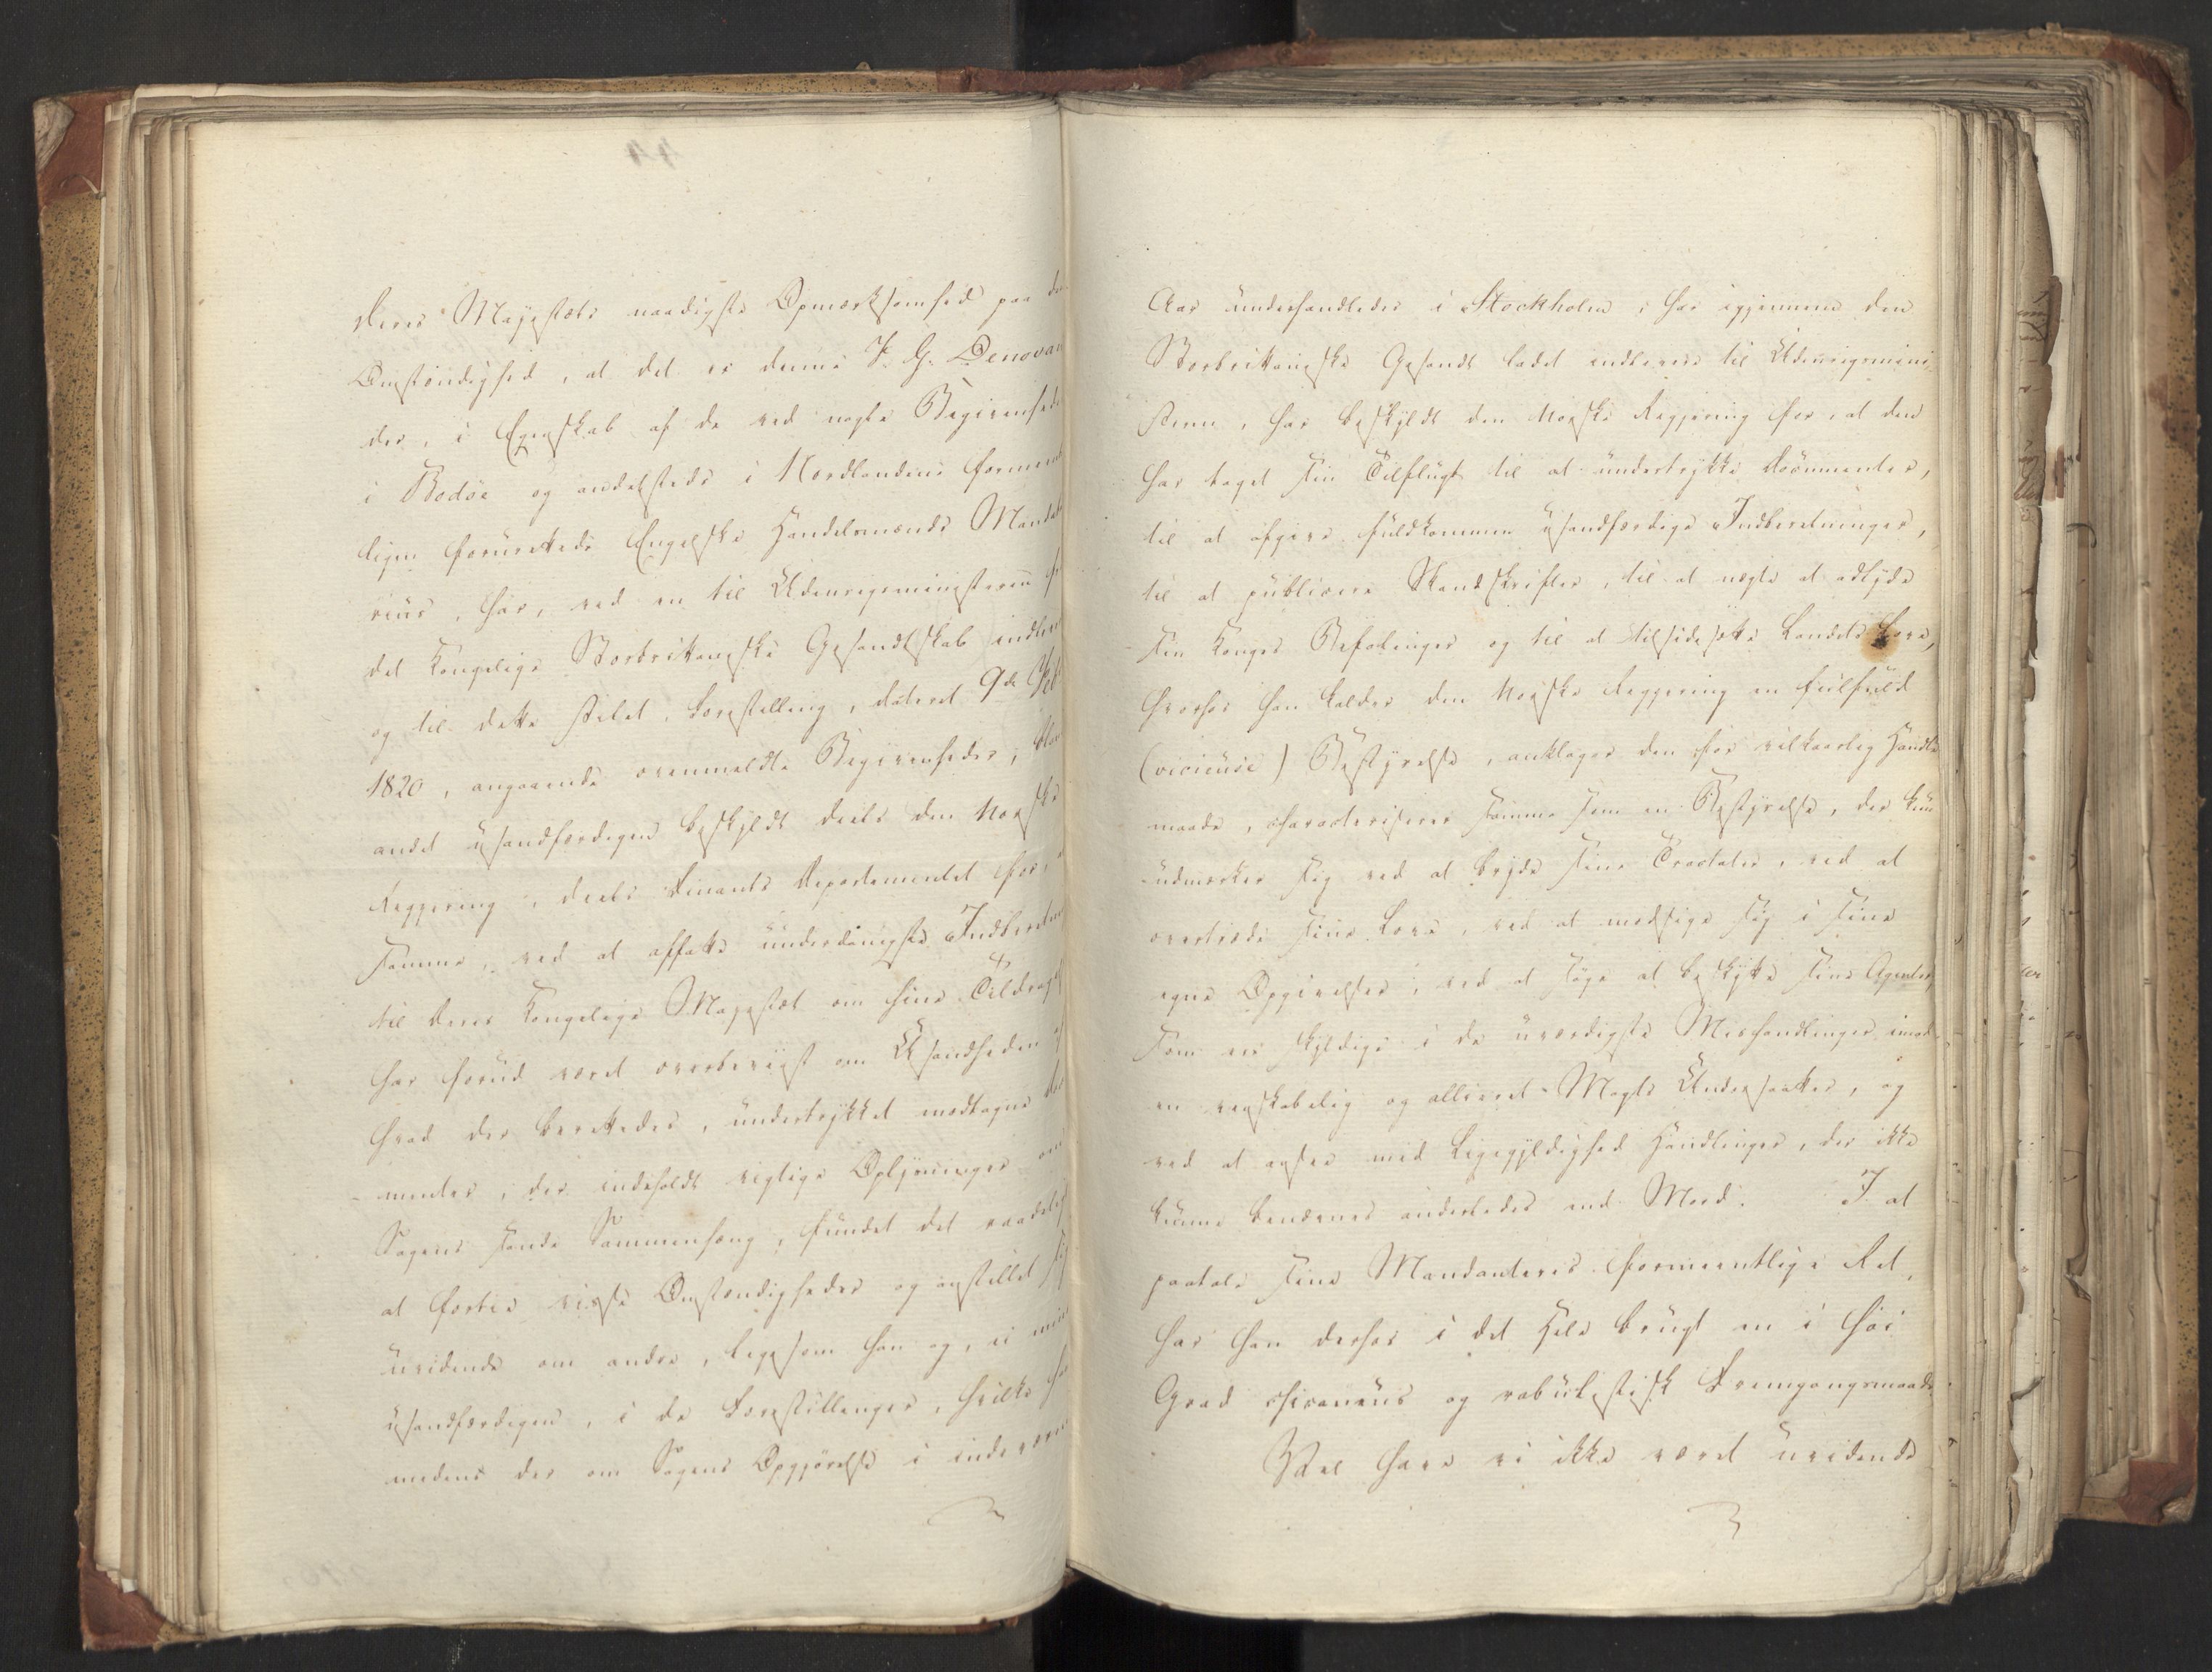 Deres Majestæts naadigste Opmærksomhed paa den
Omstændighed, at det er denne J. G. Denovan
der, i Egenskab af de ved nogle Begivenheder
i Bodøe og andetsteds i Nordlandene formeent
ligen forurettede Engelske Handelsmænds Mandata
rius, har, ved en til Udenrigsministeren fra
det Kongelige Storbrittaniske Gesandtskab indleveret
og til dette stilet Forestilling, dateret 9de Feb
1820, angaaende ovenmeldte Begivenheder, blandt
andet usandfærdigen beskyldt deels den Norske
Regjering, deels Finants Departementet for, at
samme, ved at affatte underdanigste Indberetning
til Deres Kongelige Majestæt om hine Tildragelser
har forud været overbeviist om Usandheden af
hvad der berettedes, undertrykket modtagne Docu
menter, der indeholdt rigtige Oplysninger om
Sagens sande Sammenhæng, fundet det raadeligt
at fortie visse Omstændigheder og anstillet sig
uvidende om andre, ligesom han og, ei mindre
usandfærdigen, i de Forestillinger, hvilke han
medens der om Sagens Opgjørelse i indeværende
44
Aar underhandledes i Stockholm, har igjennem den
Storbrittaniske Gesandt ladet indlevere til Udenrigsmini
steren, har beskyldt den Norske Regjering for, at den
har taget sin Tilflugt til at undertrykke Documenter,
til at afgive fuldkommen usandfærdige Indberetninger,
til at publicere Skandskrifter, til at nægte at adlyde
sin Konges Befalinger og til at tilsidesætte Landets Love,
hvorfor han kalder den Norske Regjering en feilfuld
(vicieuse) Bestyrelse, anklager den for vilkaarlig Handle
maade, characteriserer samme som en Bestyrelse, der kun
udmærker sig ved at bryde sine Tractater, ved at
overtræde sine Love, ved at modsige sig i sine
egne Opgivelser, ved at søge at beskytte sine Agenter,
som ere skyldige i de uværdigste Mishandlinger imod
en venskabelig og allieret Magts Undersaatter, og
ved at ansee med Ligegyldighed Handlinger, der ikke
kunne benævnes anderledes end Mord. I at
paatale sine Mandanteres formeentlige Ret,
har han derhos i det Hele brugt en i høi
Grad chicaneus og rabulistisk Fremgangsmaade
Vel have vi ikke været uvidende